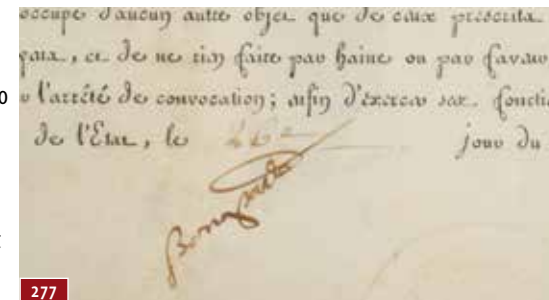 occupe d'aucun autre objet que de ceux prescrits
et de ne rien faire par haine ou par faveur
l'arrêté de convocation; afin d'exercer ses fonctio
de l'Etat, le 26e jour du
Bonaparte
277